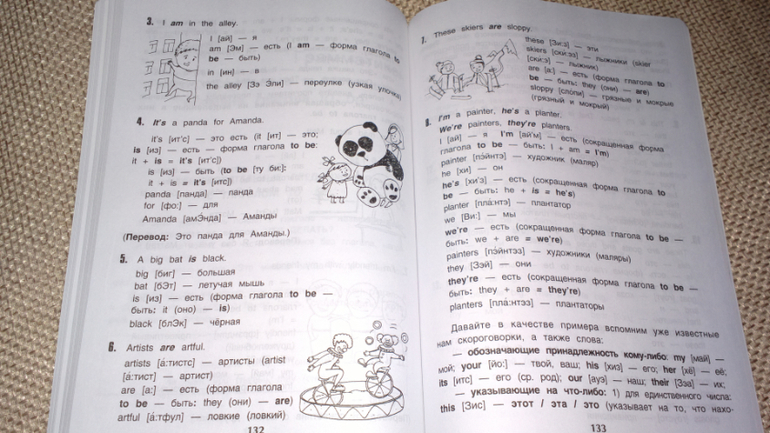 3. I am in the alley.
I [ай] — я
am [Эм] — есть (I am — форма глагола to
be — быть)
in [ин] — в
the alley [Зэ Эли] — переулке (узкая улочка)
4. It's a panda for Amanda.
it's [ит'с] — это есть (it [ит] — это;
is [из] — есть — форма глагола to be:
it + is = it's [ит'с])
is [из] — быть (to be [ту би:]:
it + is = it's [итс])
panda [панда] — панда
for [фо:] — для
Amanda [амЭнда] — Аманды
(Перевод: Это панда для Аманды.)
5. A big bat is black.
big [биг] — большая
bat [бЭт] — летучая мышь
is [из] — есть (форма глагола to be —
быть: it (оно) — is)
black [блЭк] — чёрная
6. Artists are artful.
artists [а́:тистс] — артисты (artist
[а́:тист] — артист)
are [а:] — есть (форма глагола
to be — быть: they (они) — are)
artful [а́:тфул] — ловкие (ловкий)
132
7. These skiers are sloppy.
these [Зи:з] — эти
skiers [ски́:эз] — лыжники (skier
[ски́:э] — лыжник)
are [а:] — есть (форма глагола to
be — быть: they (они) — are)
sloppy [слопи] — грязные и мокрые
(грязный и мокрый)
8. I'm a painter, he's a planter.
We're painters, they're planters.
I [ай] — я I'm [ай'м] — есть (сокращенная форма
глагола to be — быть: I + am = I'm)
painter [пэ́йнтэ] — художник (маляр)
he [хи] — он
he's [хи'з] — есть (сокращенная форма глагола to
be — быть: he + is = he's)
planter [пла́:нтэ] — плантатор
we [Ви:] — мы
we're — есть (сокращенная форма глагола to be —
быть: we + are = we're)
painters [пэ́йнтэз] — художники (маляры)
they [Зэй] — они
they're — есть (сокращенная форма глагола to be —
быть: they + are = they're)
planters [пла́:нтэз] — плантаторы
Давайте в качестве примера вспомним уже известные
нам скороговорки, а также слова:
— обозначающие принадлежность кому-либо: my [май] —
мой; your [йо:] — твой, ваш; his [хиз] — его; her [хё] — её;
its [итс] — его (ср. род); our [ауэ] — наш; their [Зэа] — их;
— указывающие на что-либо: 1) для единственного числа:
this [Зис] — этот / эта / это (указывает на то, что нахо-
133